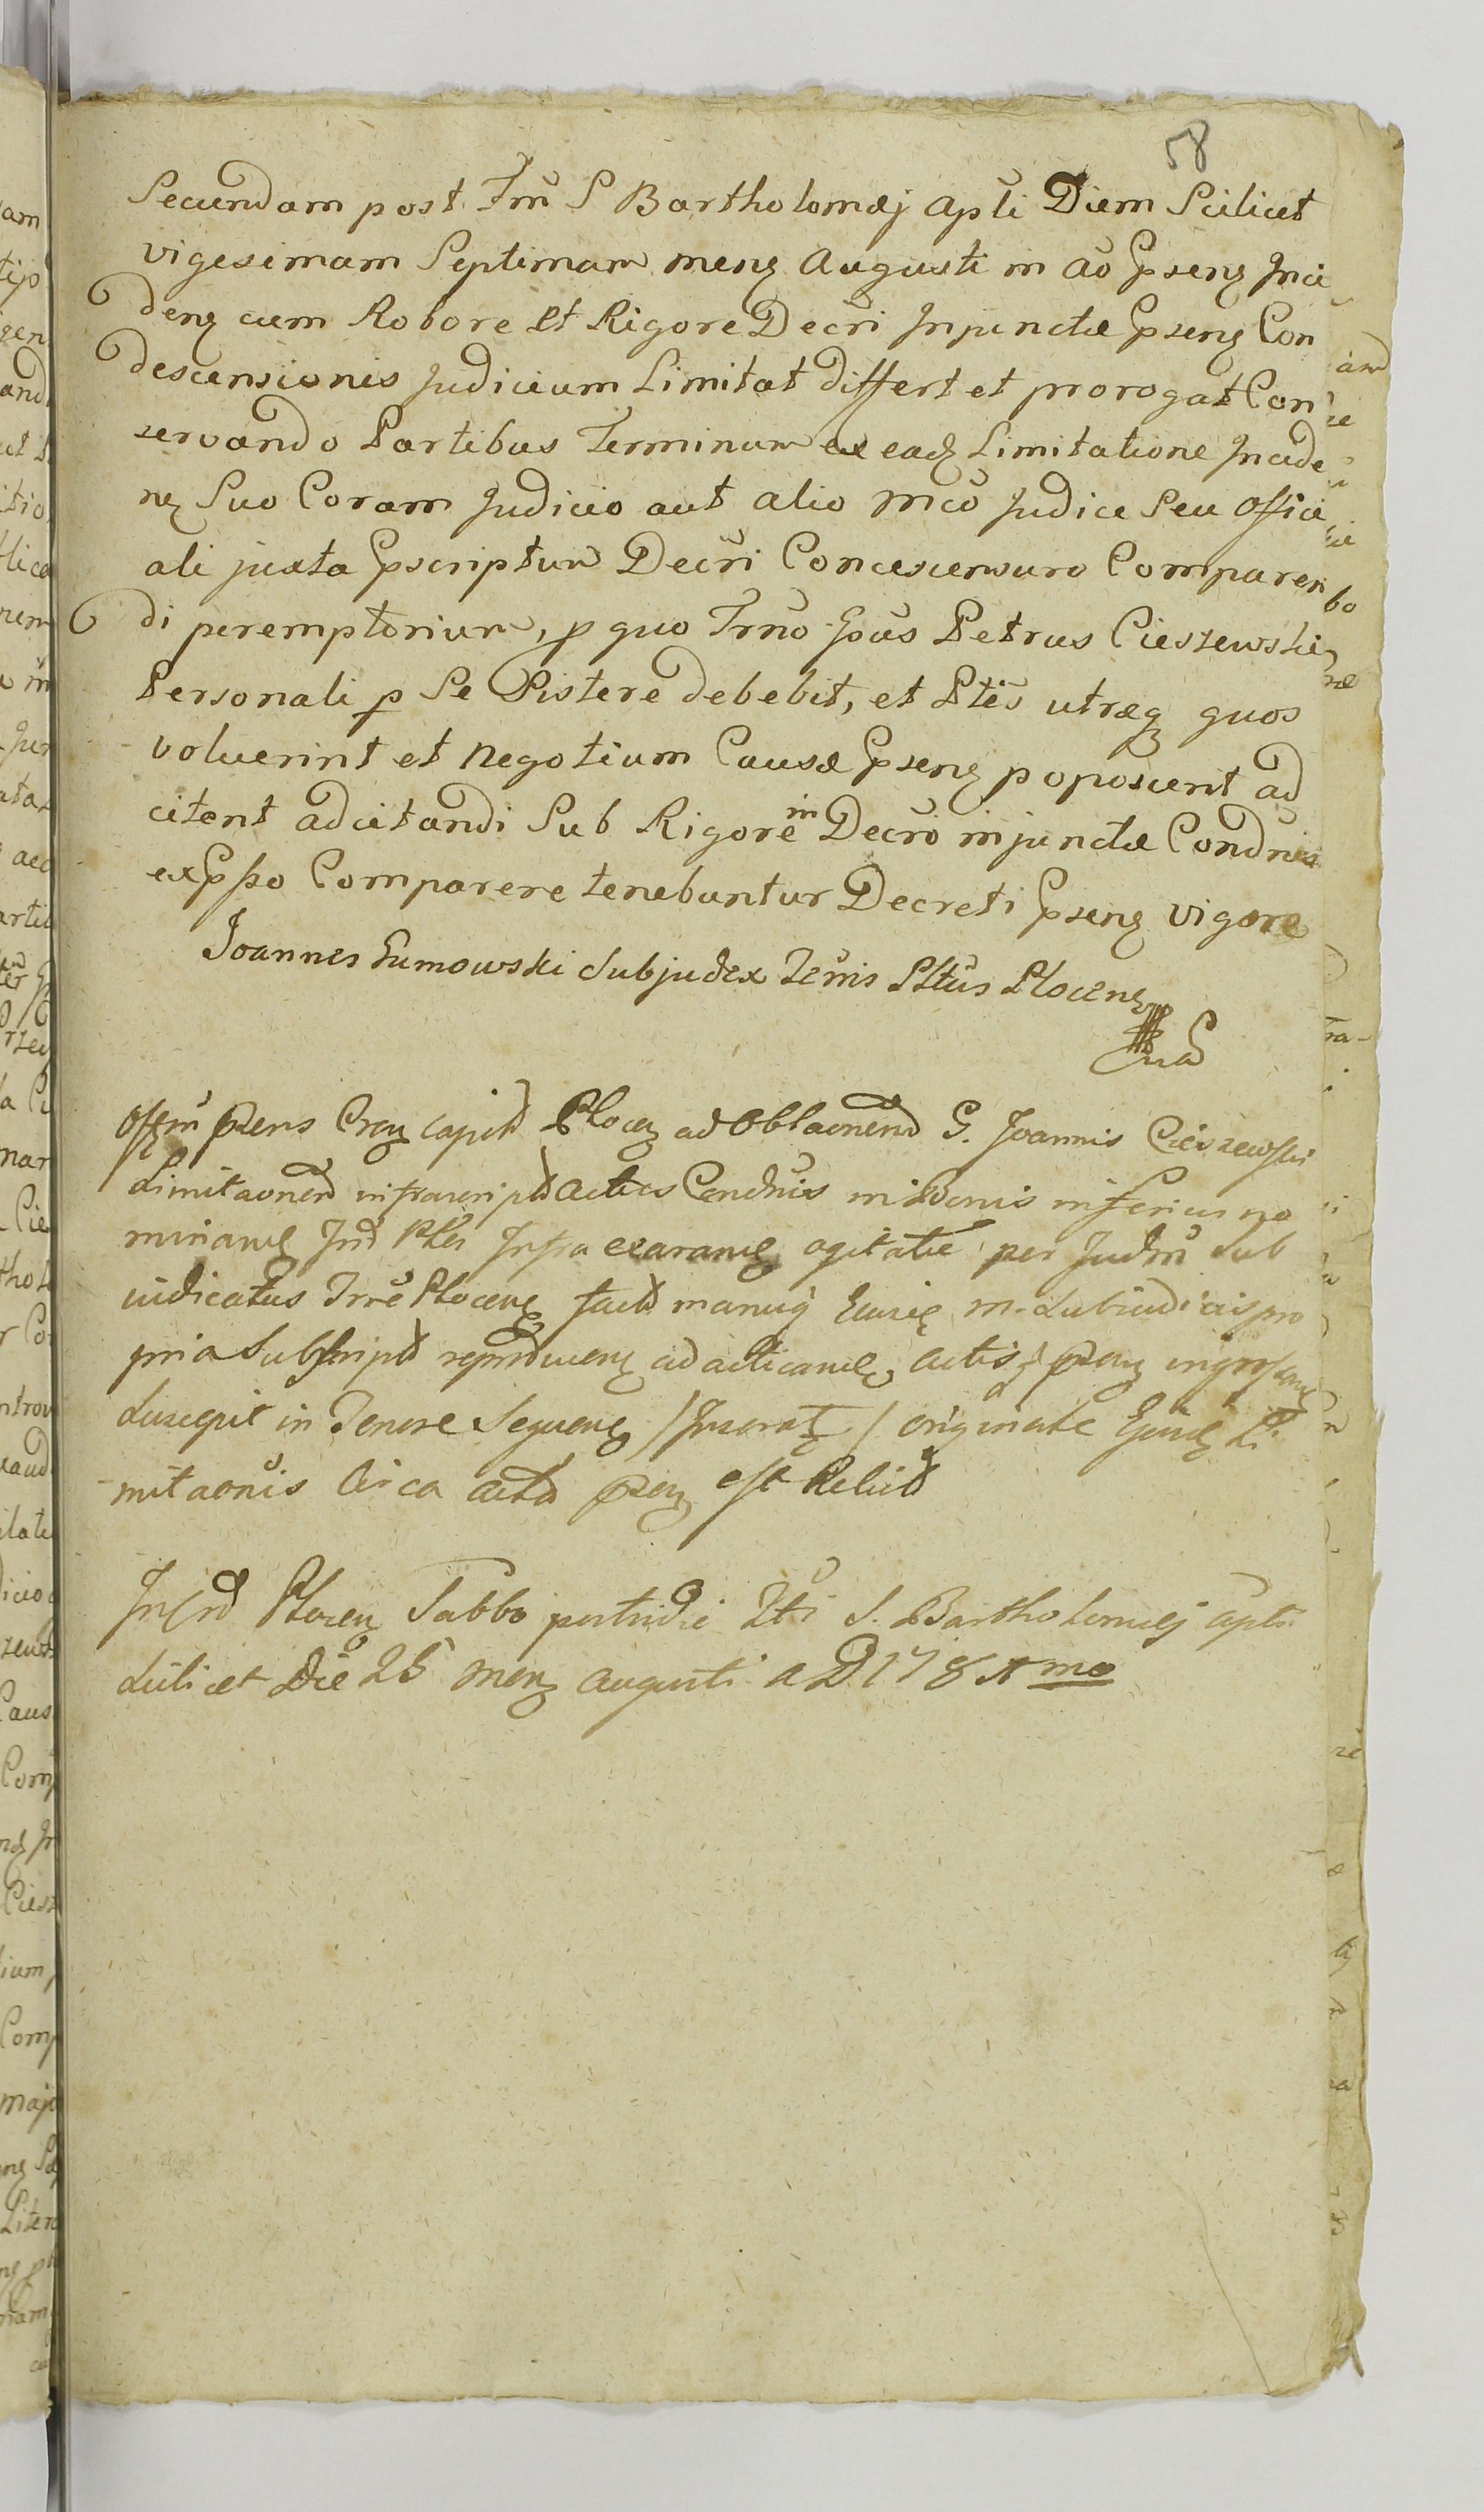 58
Secundam post Fm̃ S Bartholomæj Apl̃i Diem Scilicet
vigesimam Septimam mensꝫ Augusti in aõ Præsenꝫ Inci
denꝫ cum Robore Et Rigore Decr̃i Injunctæ Præsenꝫ Con
descensionis Judicium Limitat differt et prorogat Con
servando Partibus Terminum ex eadꝫ Limitatione Incide
nꝫ Suo Coram Judicio aut alio mcõ Judice Seu offici
ali juxta Præscriptum Decr̃i Concescensuro Comparen
di peremptorium, p quo Trnõ Gñus Petrus Cieszewski
Personali p Se Sistere debebit, et Ptẽs utræqꝫ quos
voluerint et Negotium Causæ Præsenꝫ poposcerit ad
citent adcitandi Sub Rigore in Decrõ injunctæ Condnis
expsso Comparere tenebuntur Decreti Præsenꝫ vigore
Joannes Sumowski Subjudex Terris Pltus Plocenꝫ
mp
Offm̃ Præns Cꝫ Capit Plocꝫ ad Oblaonem G. Joannis Cieszewski
Limitaonem infrascript actus Condnis in Bonis inferius no
minanꝫ Int Ptes Infra exaranꝫ agitatæ per Judm̃ Sub
iudicatus Trrẽ Plocenꝫ fact manuqꝫ Eiusdꝫ M. Subiudicis pro
pria Subscript reproducenꝫ ad acticanꝫ actisqꝫ præsenꝫ ingrossanꝫ
Suscepit in Tenore Sequenꝫ /Inseratꝫ/ originale Ejusdꝫ Li
mitaonis Circa acta præsenꝫ est Relict
Plocenꝫ Sabbo postridie Fti S. Bartholomæj apli
Scilicet Die 25 menꝫ Augusti A D 178